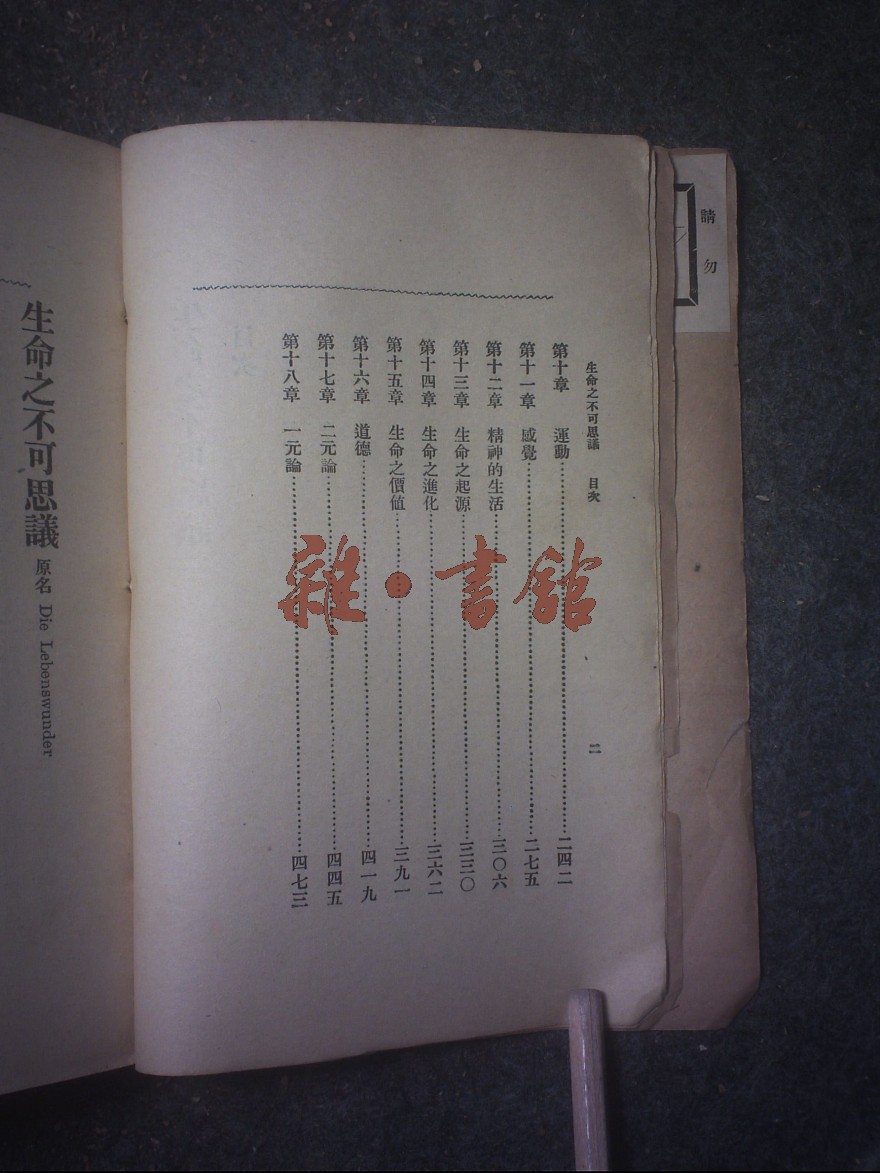 請勿
生命之不可思議 目次 二
第十章 運動…………二四二
第十一章 感覺…………二七五
第十二章 精神的生活…………三〇六
第十三章 生命之起源…………三三〇
第十四章 生命之進化…………三六二
第十五章 生命之價値…………三九一
第十六章 道德…………四一九
第十七章 二元論…………四四五
第十八章 一元論…………四七三
雜·書館
生命之不可思議 原名 Die Lebenswunder